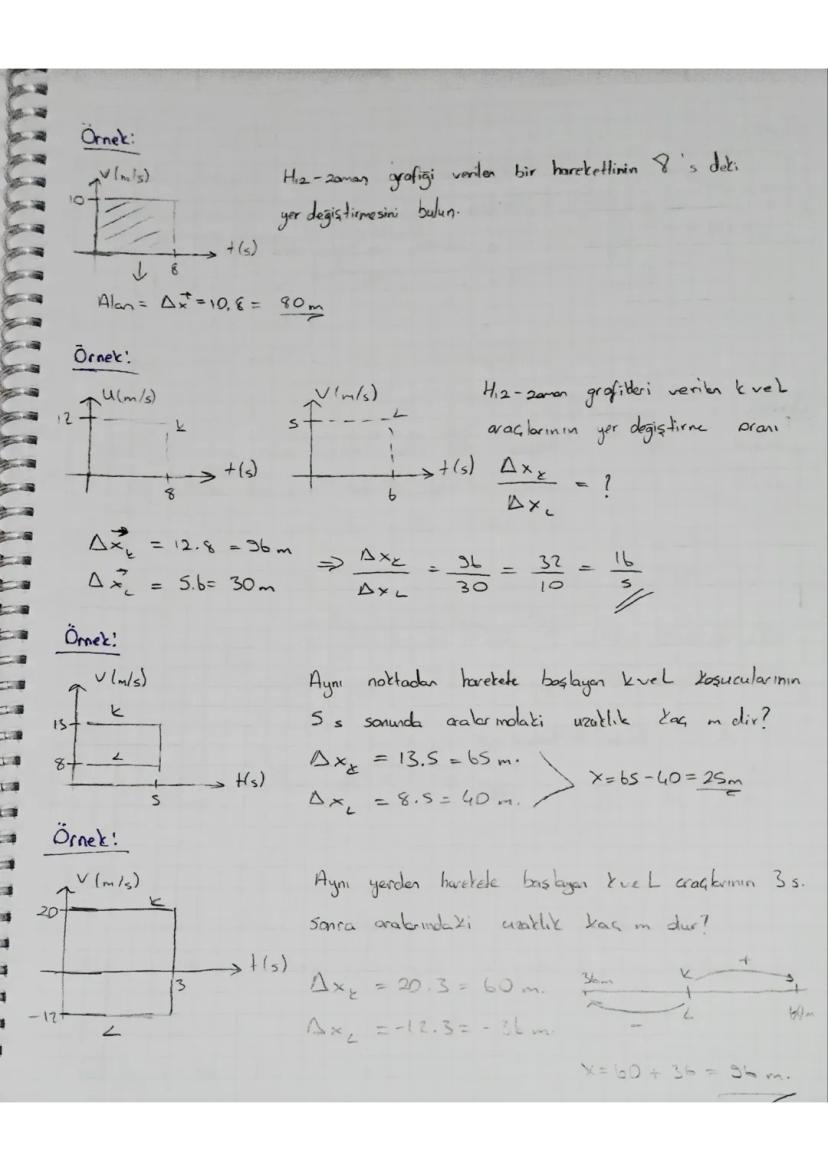 Örnek:
V(m/s)
10
8
t(s)
Hız-zaman grafiği verilen bir hareketlinin 8's deki
yer değiştirmesini bulun.
Alan = Δx = 10.8 = 80m
Örnek:
V(m/s)
12
K
8
t(s)
V(m/s)
5
L
6
t(s)
Hız-zaman grafikleri verilen K ve L
araçlarının yer değiştirme oranı
Δx_K / Δx_L = ?
Δx_K = 12.8 = 96 m
Δx_L = 5.6 = 30 m
⇒ Δx_K / Δx_L = 96/30 = 32/10 = 16/5
Örnek:
V(m/s)
K
13
L
8
5
t(s)
Aynı noktadan harekete başlayan K ve L koşucularının
5 s sonunda aralarındaki uzaklık kaç m dir?
Δx_K = 13.5 = 65 m.
Δx_L = 8.5 = 40 m.
X = 65 - 40 = 25m
Örnek:
V(m/s)
20
K
3
t(s)
-12
L
Aynı yerden harekete başlayan K ve L araçlarının 3 s.
sonra aralarındaki uzaklık kaç m dur?
Δx_K = 20.3 = 60 m.
Δx_L = -12.3 = -36 m.
36m
K
+
-
L
60m
X = 60 + 36 = 96 m.